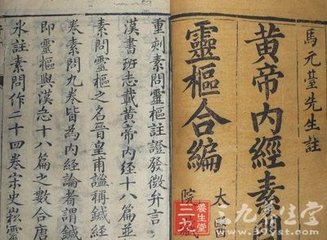 馬元臺先生註
黃帝內經素
靈樞合編
太
院
重刻素問靈樞註證發微弁言
漢書班志載黃帝內經十八篇
素問靈樞之名晉皇甫謐稱鍼經
卷素問九卷皆為內經論者謂鍼
即靈樞與漢志十八篇之數合唐
氷註素問作二十四卷宋史崧靈
三九
養生堂